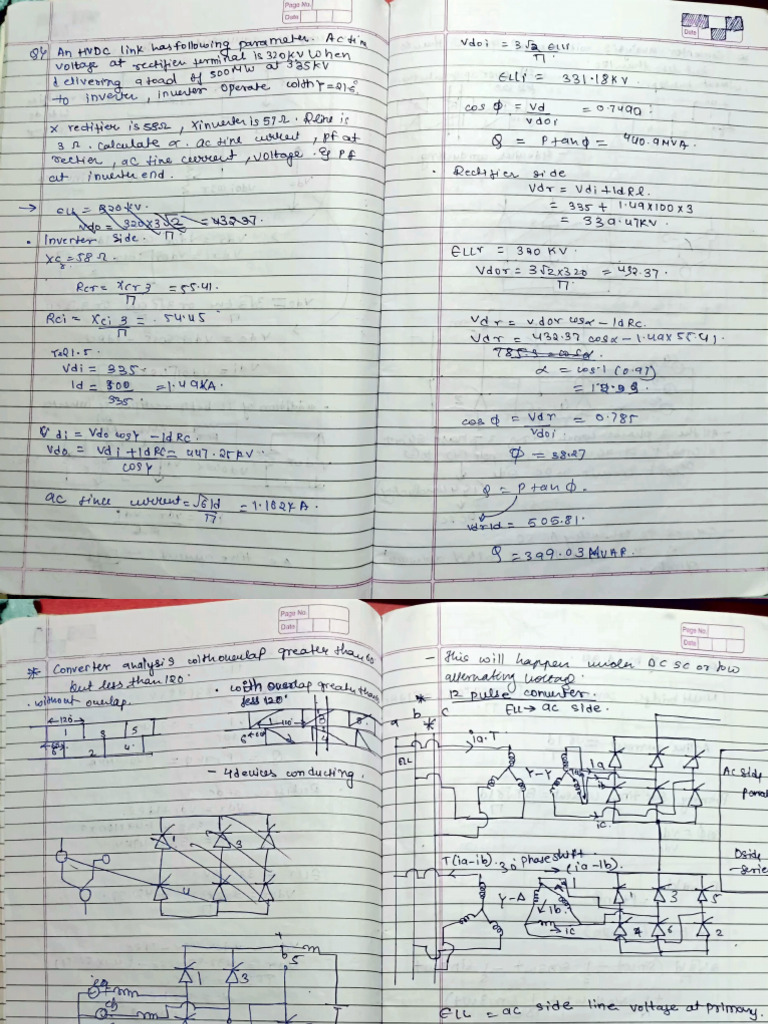 Page No.
Date
Q4 An HVDC link has following parameter. Ac line
voltage at rectifier terminal is 320 kV when
delivering a load of 500 MW at 335 kV
to inverter, inverter operate with γ = 21.5°
X rectifier is 58Ω, X inverter is 57Ω. Rline is
3 Ω. calculate α. ac line current, pf at
rectier, ac line current, voltage & pf
at inverter end.
→ ELL = 320 kV.
Vdo = 320×3√2 = 432.37.
π
• Inverter side.
Xcr = 58 Ω.
Rcr = Xcr 3 = 55.41.
π
Rci = Xci 3 = 54.45
π
r=21.5.
Vdi = 335
Id = 500 = 1.49KA.
335
Vdi = Vdo cosγ - IdRc.
Vdo = Vdi + IdRc = 447.25 kV.
cosγ
ac line current = √6 Id = 1.162KA.
π
Date
Vdoi = 3√2 ELLi
π
ELLi = 331.18KV.
cos φ = Vd = 0.7490.
Vdoi
Q = P tanφ = 440.9MVA.
• Rectifier side
Vdr = Vdi + IdRl.
= 335 + 1.49×100×3
= 339.47KV.
ELLr = 320 KV.
Vdor = 3√2×320 = 432.37.
π
Vdr = Vdor cosα - IdRc.
Vdr = 432.37 cosα - 1.49×55.41.
α = cos-1 (0.97)
cos φ = Vdr = 0.785
Vdoi
φ = 38.27
Q = P tan φ.
VdrId = 505.81.
Q = 399.03 MVAR.
Page No.
Date
* Converter analysis with overlap greater than 60
but less than 120.
• without overlap.
• with overlap greater than
less 120°
120
1 3 5
2 4
- 4 devices conducting.
1 3
4
+
1 3 5
Page No.
Date
- This will happen under DC SC or low
alternating voltage.
* 12 pulse converter.
a b c
ELL → ac side.
ia.T
ELL
Y-Y
ia
ic
Ac side
Dside
-series
T(ia-ib). 30° phase shift.
(ia-ib).
Y-Δ
ib.
ic
1 3 5
4 6 2
ELL = ac side line voltage at primary.